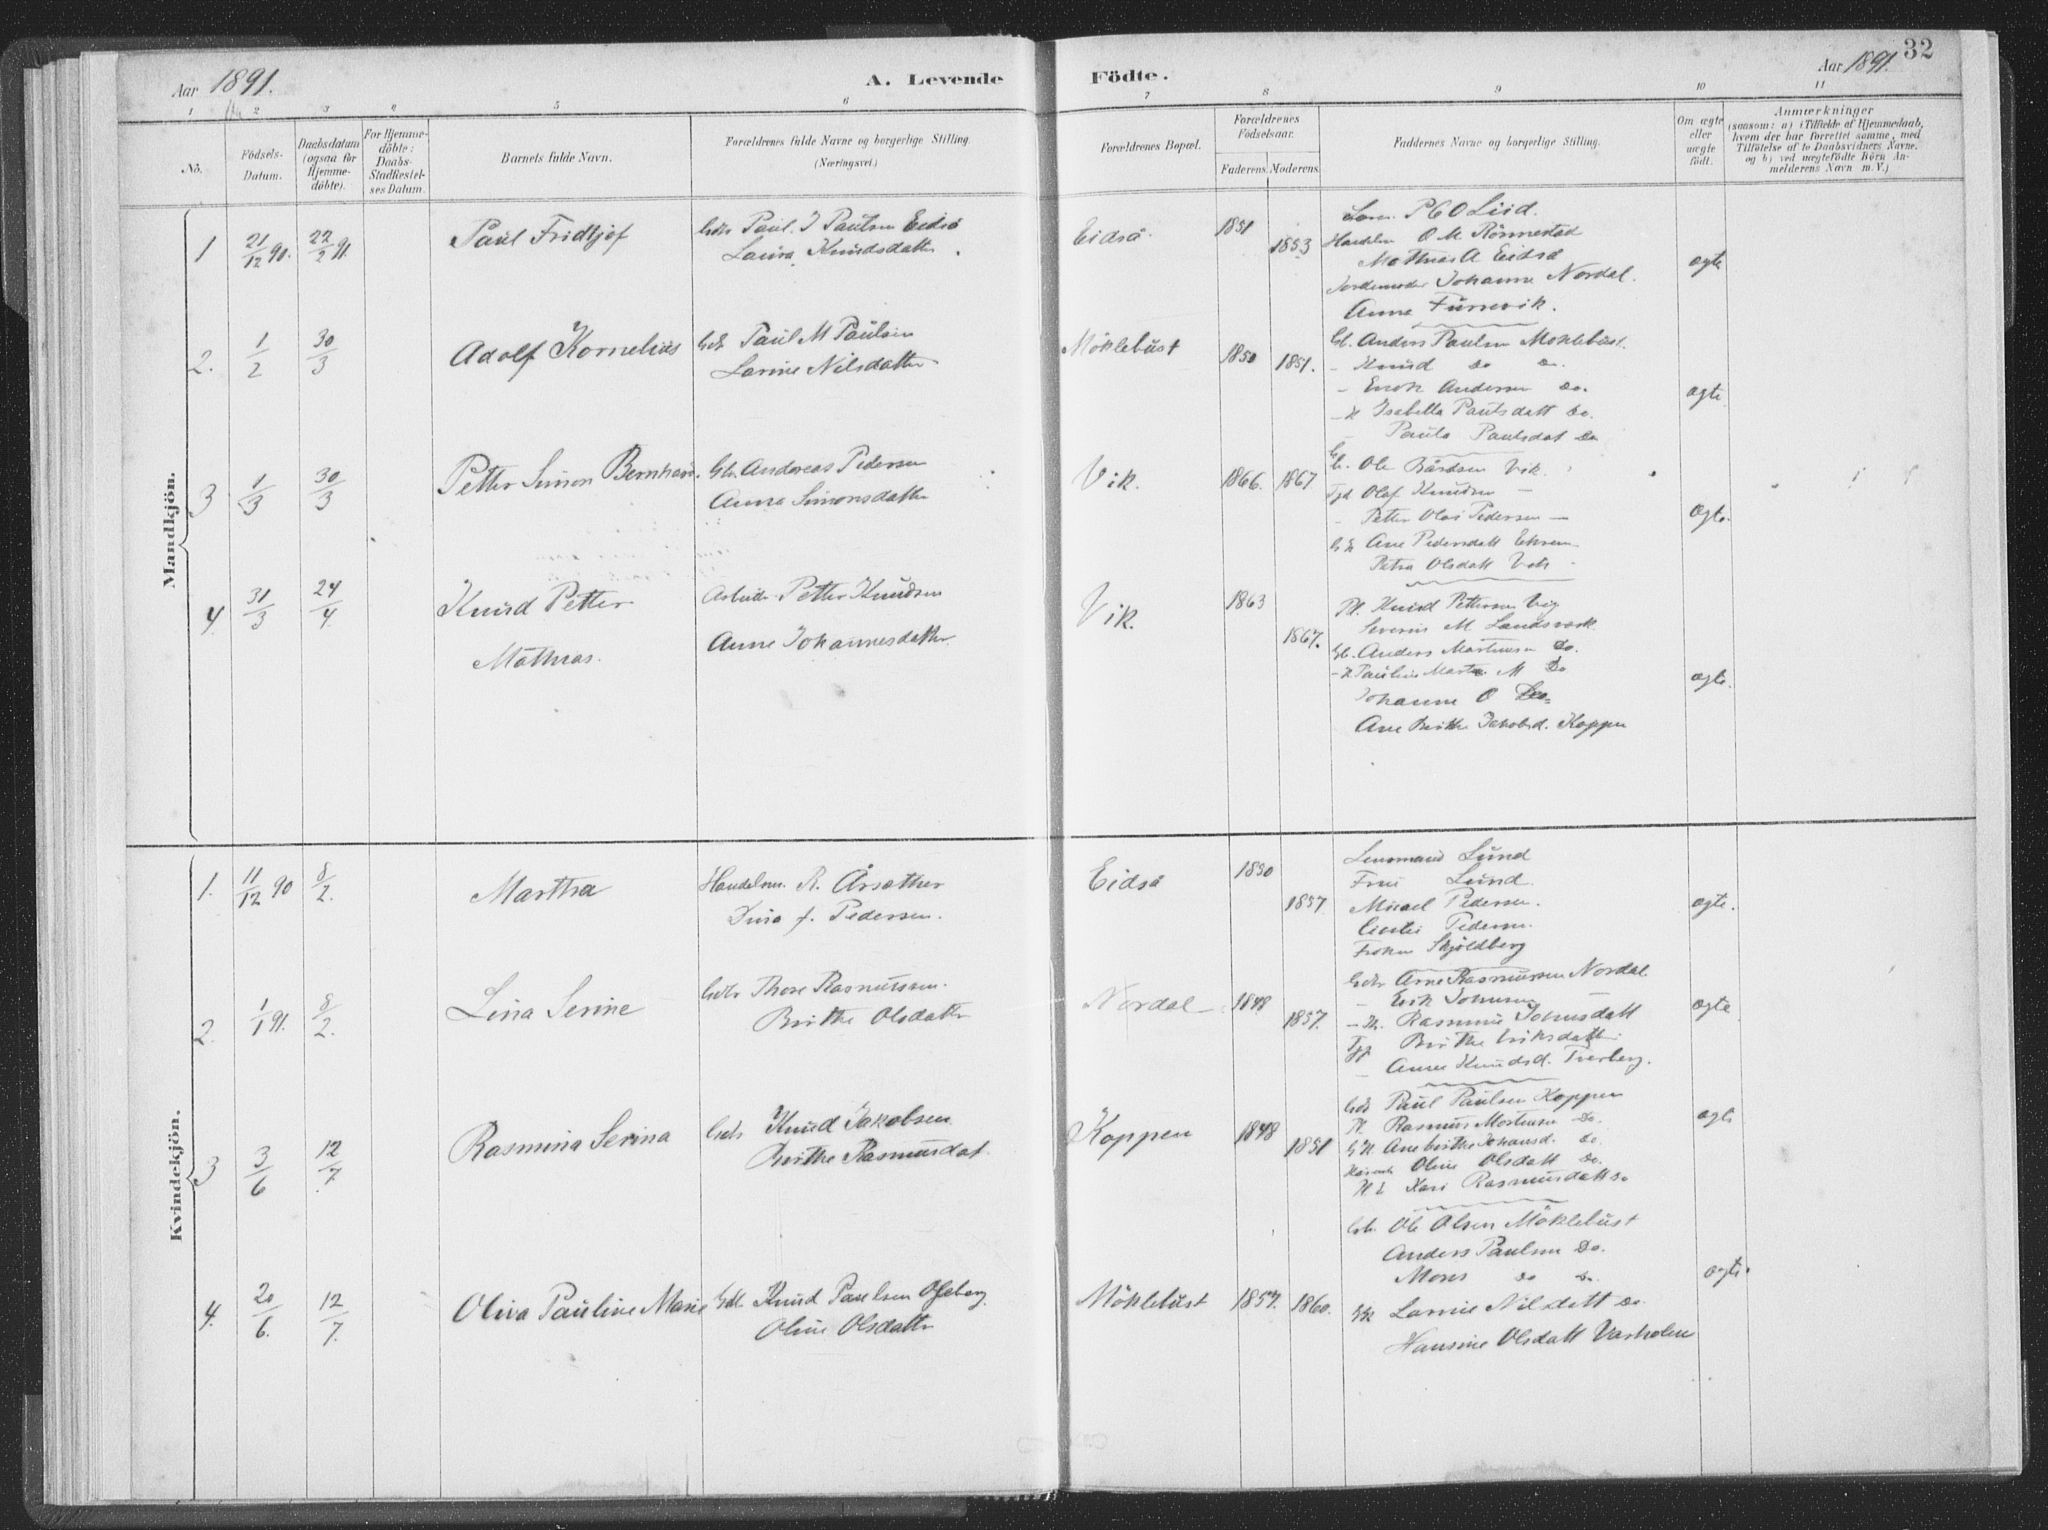 Aar 1891.
A. Levende Födte.
Aar 1891. 32
1 2 3 4 5 6 7 8 9 10 11
No.
Födsels-
Datum.
Daabsdatum
(ogsaa for
Hjemme-
döbte).
For Hjemme-
döbte:
Daabs-
Stadfæstel-
ses Datum.
Barnets fulde Navn.
Forældrenes fulde Navne og borgerlige Stilling.
(Næringsvei.)
Forældrenes Bopæl.
Forældrenes
Födselsaar.
Faderens. Moderens.
Faddernes Navne og borgerlige Stilling.
Om ægte
eller
uægte
födt.
Anmærkninger
(saasom: a) i Tilfælde af Hjemmedaab,
hvem der har forrettet samme, med
Tilföielse af to Daabsvidners Navne,
og b) ved uægtefödte Börn An-
melderens Navn m. V.)
Mandkjön.
1 21/12 90. 22/2 91. Paul Fridtjof
Gdbr Paul. J Paulsen Eidså
Laura Knudsdatter
Eidså 1851 1853
P C O Lied.
Handelsm O M Rönnestad
Mathias A Eidså
Jordemoder Johanne Nordal.
Anne Furrevik.
ægte
2. 1/2 30/3 Adolf Kornelius
Gdb Paul M Paulsen
Larine Nilsdatter
Möklebust 1850 1851.
Gb. Anders Paulsen Moklebust.
- Knud do do.
- Erik Andersen do.
- K Isabella Paulsdatt do.
Paula Paulsdat do
ægte
3 1/3 30/3 Petter Simon Bernhard.
Gbr. Andreas Pedersen
Anna Simonsdatter
Vik. 1866. 1867
Gb. Ole Bårdsen Vik.
Tgd Olaf Knudsen —
- Petter Olai Pedersen —
G K Ane Pedersdatt
Petra Olsdatt Vik
ægte.
4. 31/3 24/4 Knud Petter
Mathias.
Petter Knudsen
Anne Johannesdatter
Vik. 1863 1867.
Pl. Knud Pettersen Vig
Severin M Landsverk
Gb. Anders Martinusen do.
Johanne O do
Ane Birthe Jakobsd. Koppen
ægte.
Kvindekjön.
1. 11/12 90 8/2. Martha
Handelsm. R. Årsæther
Dina f. Pedersen.
Eidså 1850 1857
Lensmand Lund
Frue Lund.
Mikael Pedersen.
Pedersen.
Frøken Skjoldberg
ægte.
2. 1/1 91. 8/2. Lina Serine
Gdbr Thore Rasmussen.
Birthe Olsdatter
Nordal 1848 1857.
Gdbr Arne Rasmussen Nordal
- Erik Johnsen —
- K. Rasmine Johnsdatt
Tgp Birthe Eriksdatter
- Anne Knudsd. Tverberg.
ægte
3 3/6 12/7 Rasmina Serina
Gdb Knud Jakobsen
Birthe Rasmusdat.
Koppen 1848 1851
Gdb Paul Paulsen Koppen
Pl. Rasmus Mortensen do.
G K Ane birthe Johansd. do.
Oline Olsdatt do.
Kari Rasmusdatt do
ægte
4. 20/6. 12/7. Oliva Pauline Marie
Gdb. Knud Paulsen
Oline Olsdatter
Möklebust 1857. 1860.
Gb. Ole Olsen Möklebust
Anders Paulsen do.
Mons do do.
GK Larine Nilsdatt do.
Hansine Olsdatt Varholm
ægte